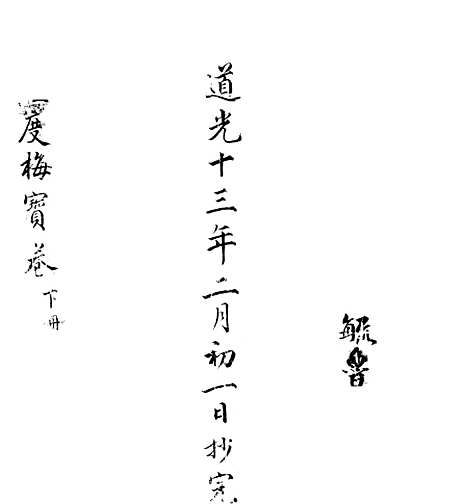 魯
道光十三年二月初一日抄完
度梅寶卷下冊